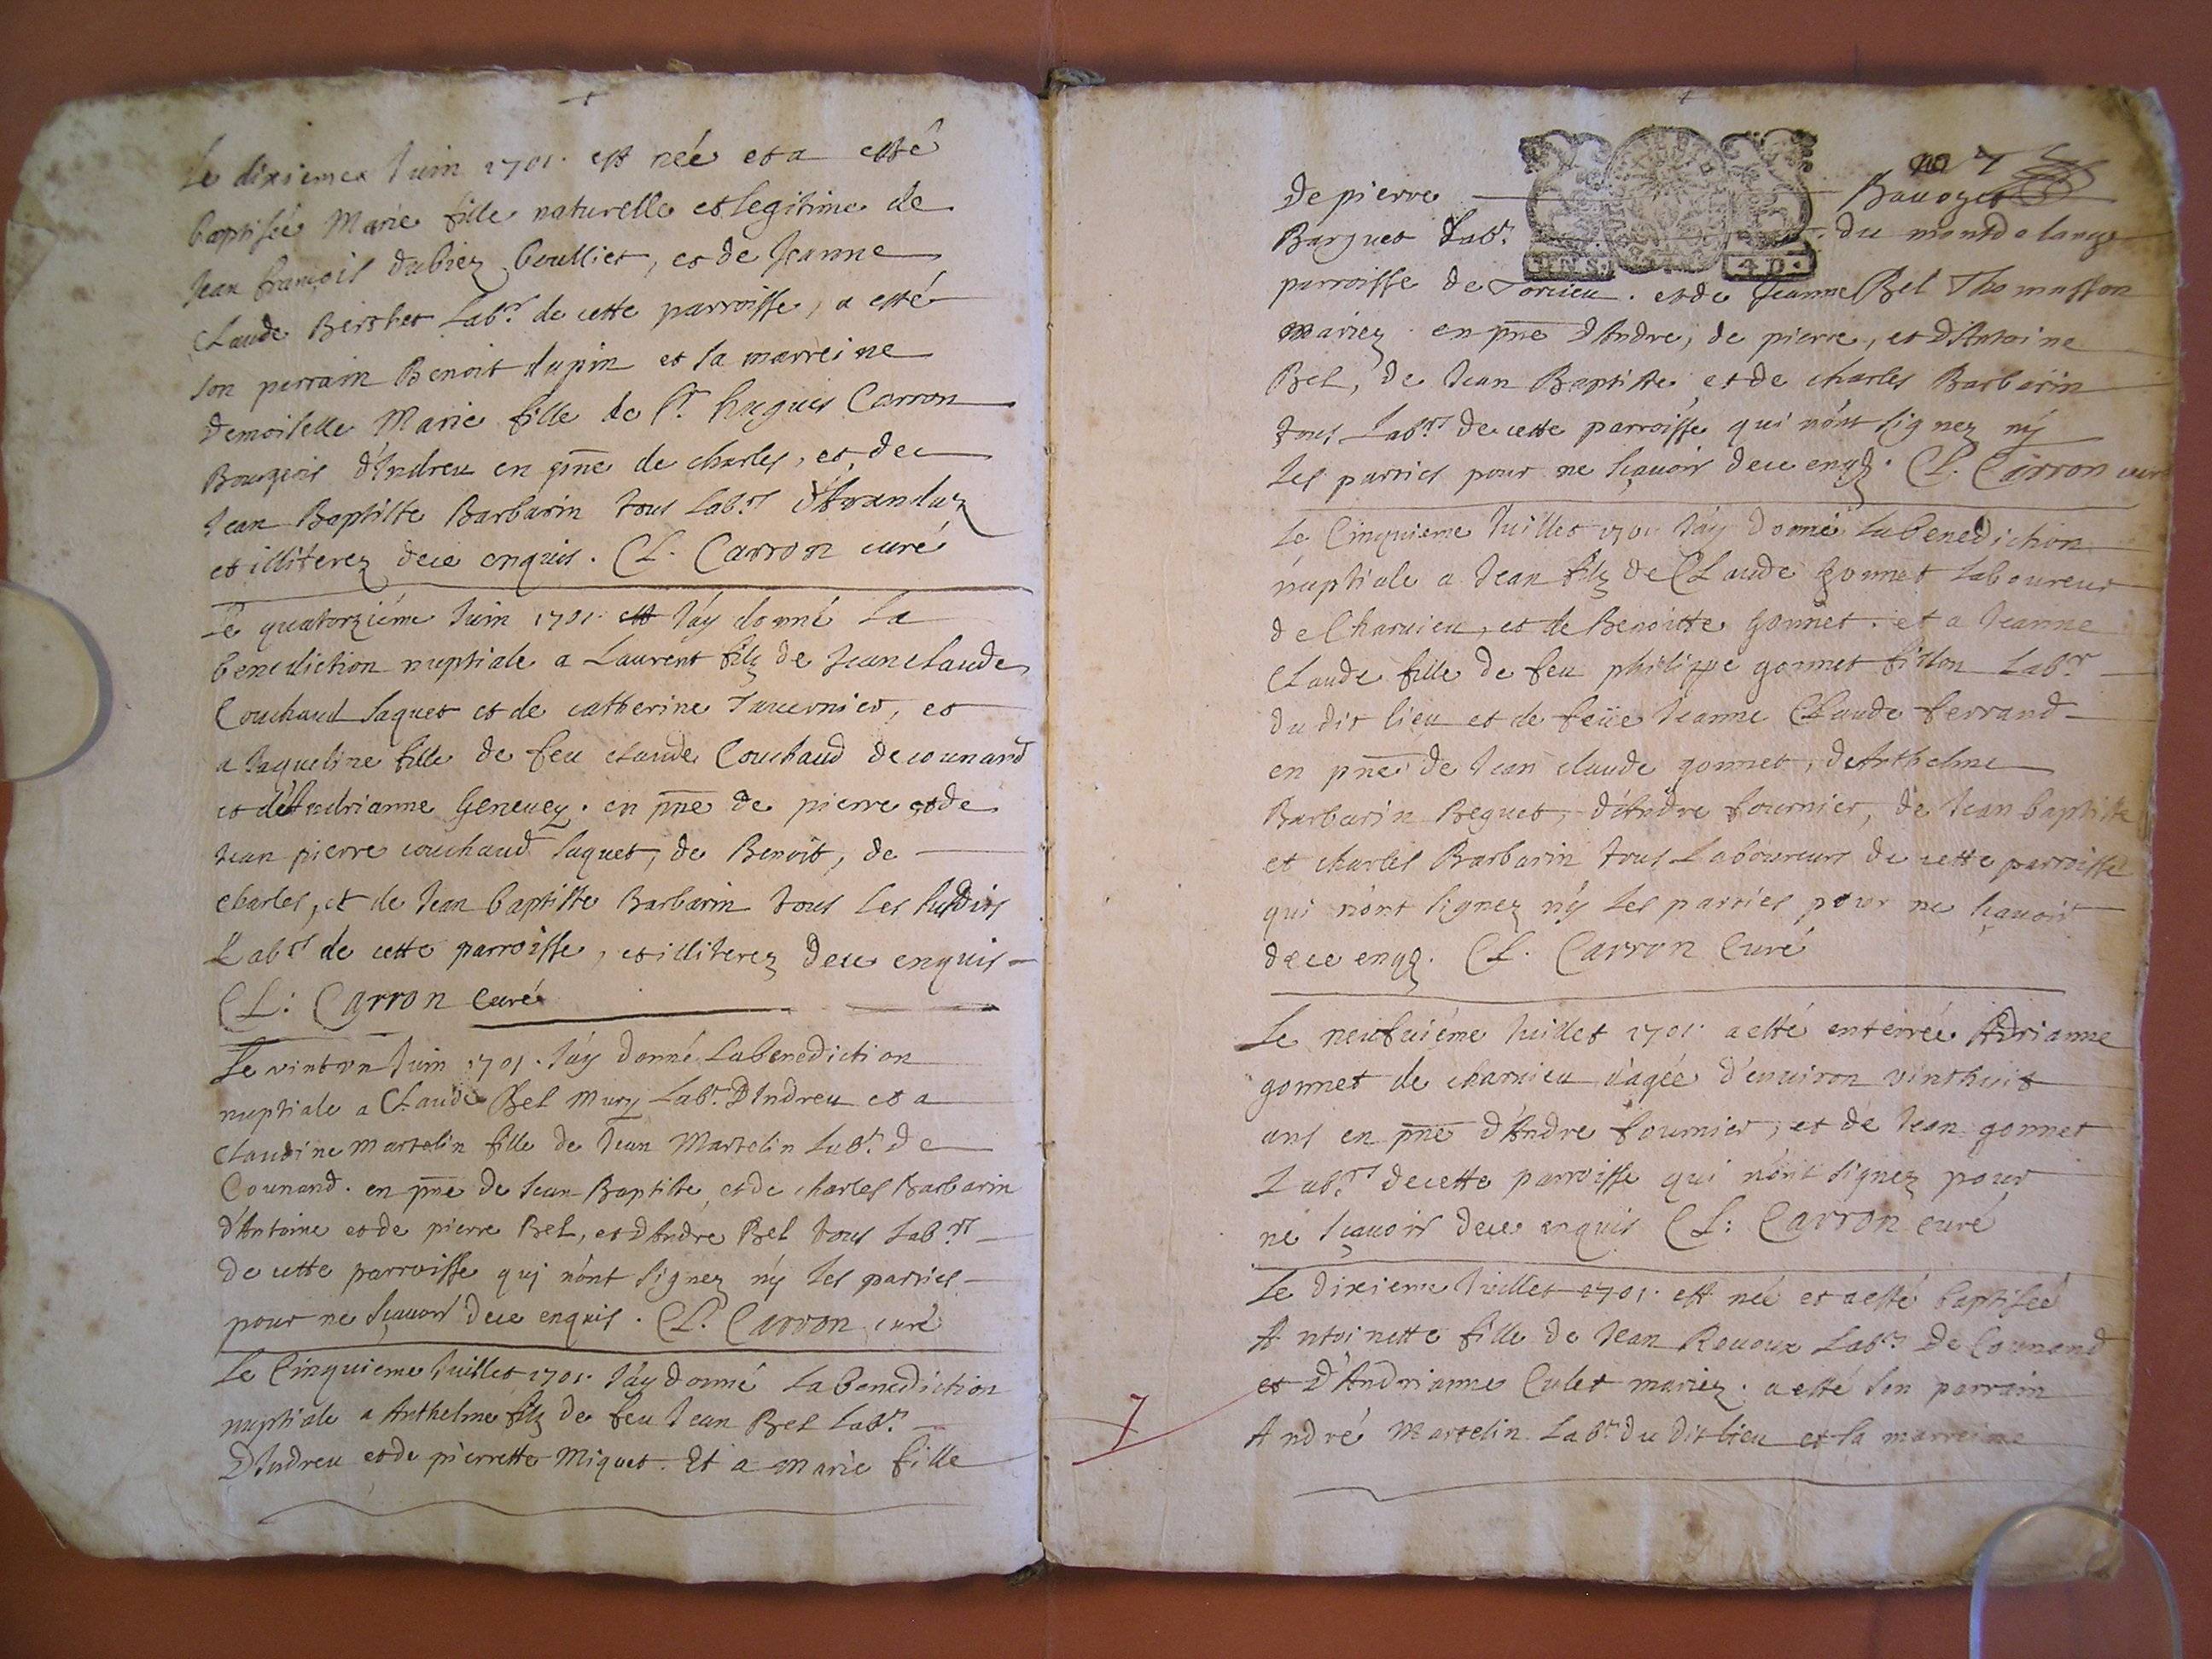 Le dixieme Juin 1701. est née et a esté
baptisée Marie fille naturelle et legitime de
Jean françois dubiez boullier, et de Jeanne
Claude Berthet Labr. de cette parroisse, a esté
son perrain Benoit dupin et la marreine
Demoiselle Marie fille de Sr. hugues Carron
Bourgeois d'Andreu en pñe de charles, et de
Jean Baptiste Barbarin tous Labrs d'Arandaz
et illiterez de ce enquis. Cl. Carron curé
Le quatorziéme Juin 1701. J'ay donné La
benediction nuptiale a Laurent filz de Jean claude
Couchaud Jaquet et de catherine Tavernier, et
a Jaqueline fille de feu claude Couchaud de counand
et d'Andrianne Genevey. en pñe de pierre et de
Jean pierre couchaud Jaquet, de Benoit, de
charles, et de Jean baptiste Barbarin tous Les susdits
Labrs de cette parroisse, et illiterez de ce enquis
CL: Carron Curé
Le vint un Juin 1701. J'ay donné La benediction
nuptiale a Claude Bel mury Labr. D'Indreu et a
Claudine Martelin fille de Jean Martelin Labr. de
Counand. en pñe de Jean Baptiste, et de charles Barbarin
d'Antoine et de pierre Bel, et d'Andre Bel tous Labrs
de cette parroisse qui n'ont signez n'y les parties
pour ne sçavoir de ce enquis. Cl. Carron curé
Le Cinquieme Juillet 1701. J'ay donné La benediction
nuptiale a Anthelme filz de feu Jean Bel Labr.
D'Indreu et de pierrette Miquet. Et a marie fille
7
De pierre Bavozet
Barquet Labr. du mont de lange
4 D.
parroisse de Torcieu. et de Jeanne Bel Thomasson
mariez en pñe d'Andre, de pierre, et d'Antoine
Bel, de Jean Baptiste et de charles Barbarin
tous Labrs de cette parroisse qui n'ont signez ny
les parties pour ne sçavoir de ce enqz. Cl. Carron curé
Le Cinquieme Juillet 1701 J'ay donné la benediction
nuptiale a Jean filz de Claude gonnet laboureur
de Charvieu, et de Benoitte gonnet. et a Jeanne
Claude fille de feu philippe gonnet fillon Labr
du dit lieu et de feüe Jeanne Claude ferrand
en pñe de Jean claude gonnet, de Anthelme
Barbarin Beguet, d'Andre fournier, de Jean baptiste
et charles Barbarin tous Laboureurs de cette parroisse
qui n'ont signez n'y les parties pour ne sçavoir
de ce enqz. Cl. Carron Curé
Le neufuiéme Juillet 1701. a esté enterrée Adrianne
gonnet de charvieu agée d'environ vinthuit
ans en pñe d'Andre fournier, et de Jean gonnet
Labrs de cette parroisse qui n'ont signez pour
ne sçavoir de ce enquis Cl: Carron curé
Le dixieme Juillet 1701. est née et a esté baptisée
Antoinette fille de Jean Revoux Labr. de Counand
et D'Andrianne Culet mariez. a esté son parrain
André Martelin Labr du dit lieu et la marreine